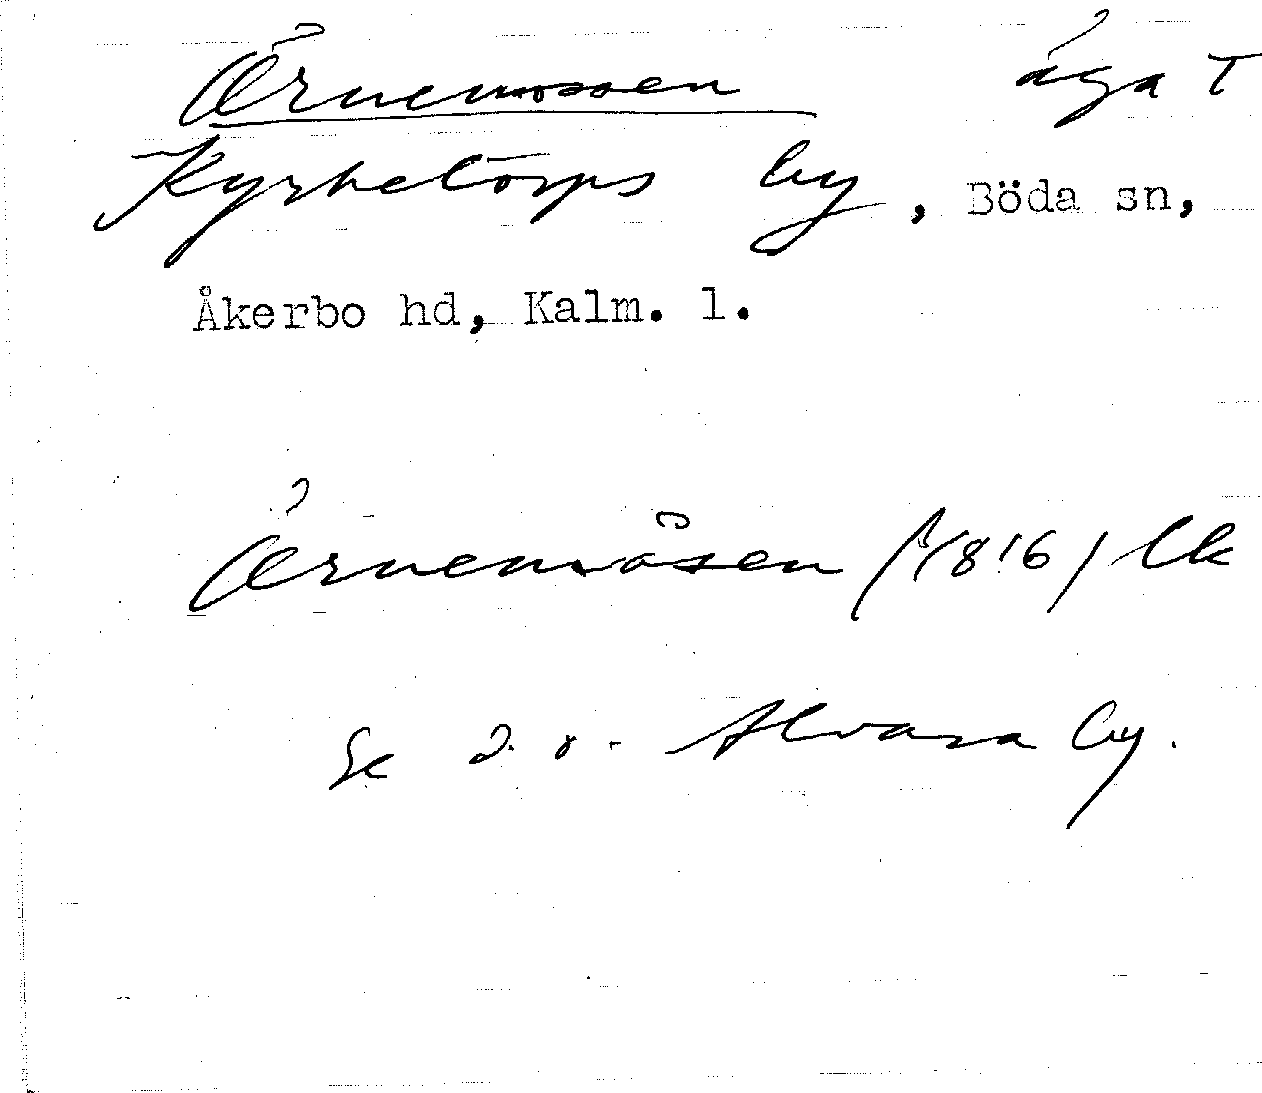 Örnemossen äga T
Kyrketorps by, Böda sn,
Åkerbo hd, Kalm. l.
Örnemåsen (1816) lk
Se d. o. Alvara by.